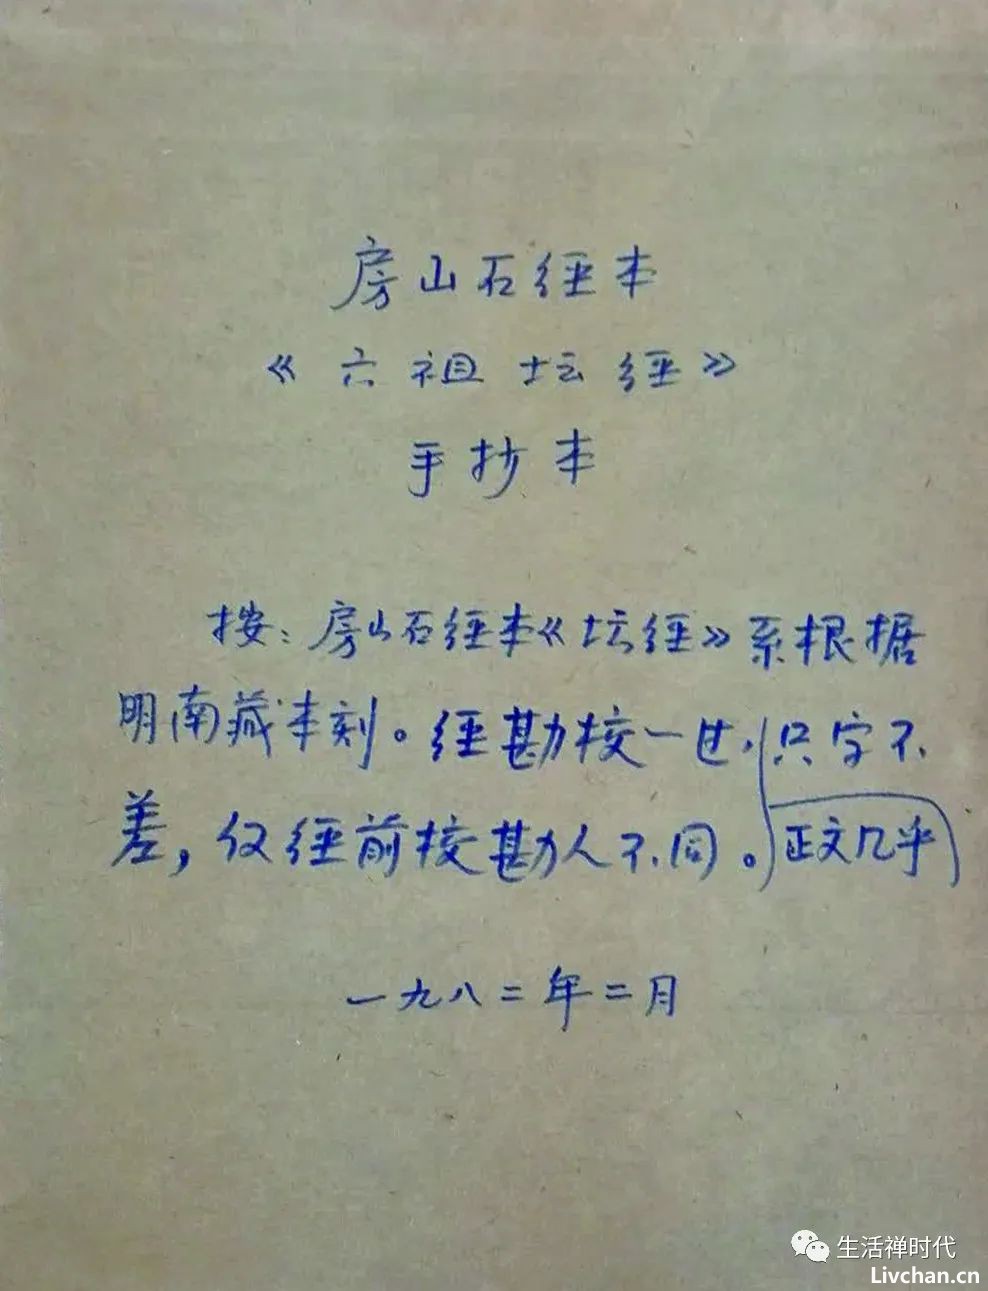 房山石经本
《六祖坛经》
手抄本
按：房山石经本《坛经》系根据
明南藏本刻。经勘校一过，只字不
差，仅经前校勘人不同。正文几乎
一九八二年二月
生活禅时代
Livchan.cn